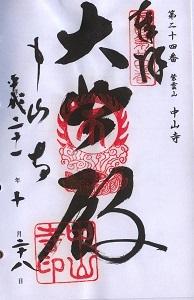 第二十四番 紫雲山 中山寺
奉拝
大悲殿
中山寺
平成二十一年十月二十八日
中山寺印